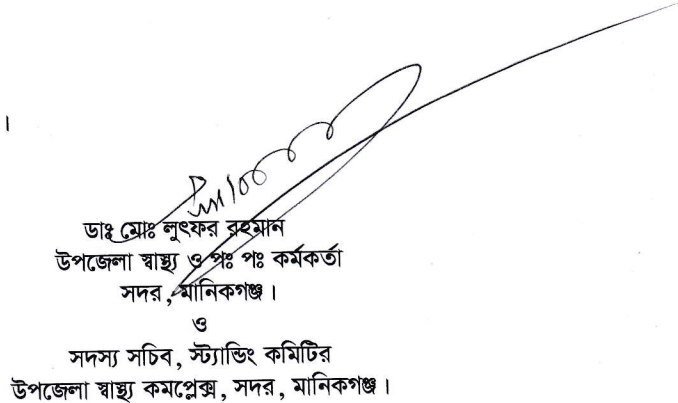 ।
ডাঃ মোঃ লুৎফর রহমান
উপজেলা স্বাস্থ্য ও পঃ পঃ কর্মকর্তা
সদর, মানিকগঞ্জ।
ও
সদস্য সচিব, স্ট্যান্ডিং কমিটির
উপজেলা স্বাস্থ্য কমপ্লেক্স, সদর, মানিকগঞ্জ।